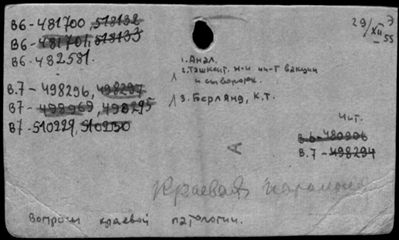 В6-481700, 513132
В6-481701, 513133
В6-482581.
В.7-498296, 498297
В7-498969, 498295
В7-510229, 510230
29/XII 55
Э
1. Анал.
2. Ташкент. н-и ин-т вакцин
и сывороток.
3. Берлянд, К.Т.
Чит.
В.7-498294
А
Краевая патология
Вопросы краевой патологии.